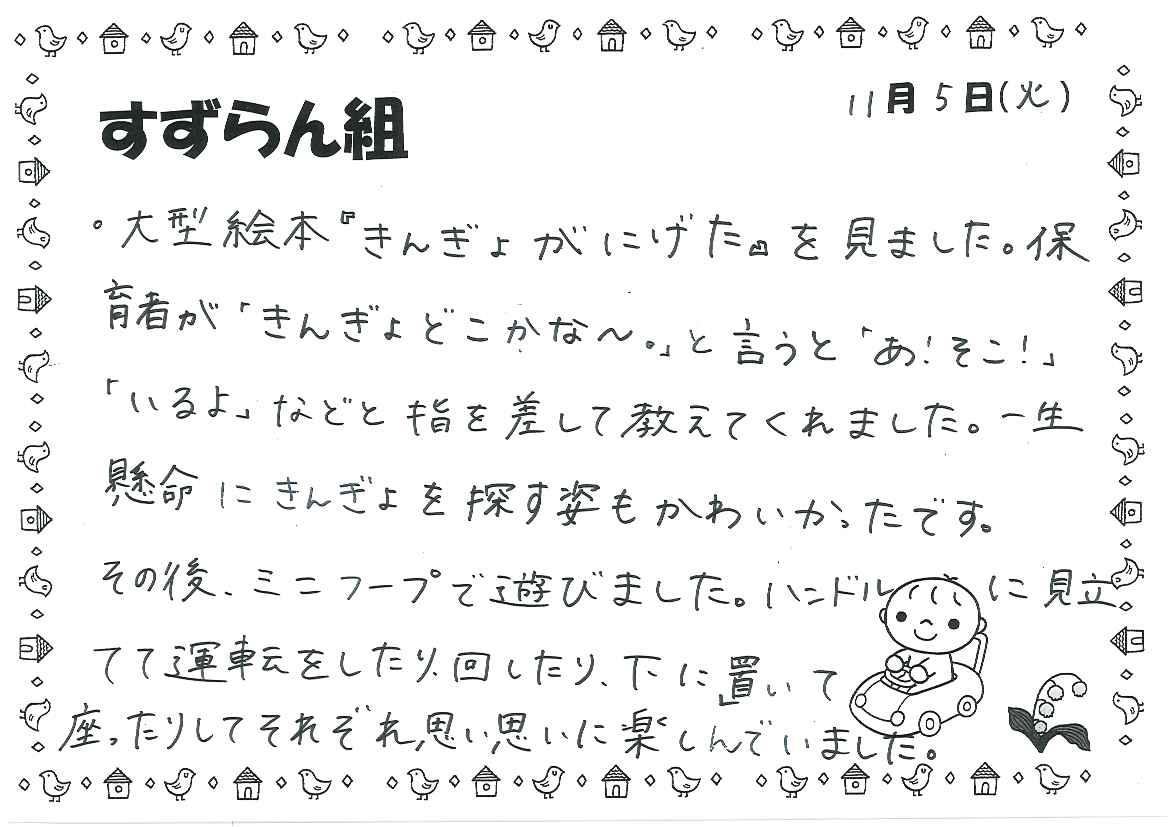 すずらん組
11月5日(火)
。大型絵本『きんぎょがにげた』を見ました。保
育者が「きんぎょどこかな〜。」と言うと「あ!そこ!」
「いるよ」などと指を差して教えてくれました。一生
懸命にきんぎょを探す姿もかわいかったです。
その後、ミニフープで遊びました。ハンドルに見立
てて運転をしたり、回したり、下に置いて
座ったりしてそれぞれ思い思いに楽しんでいました。